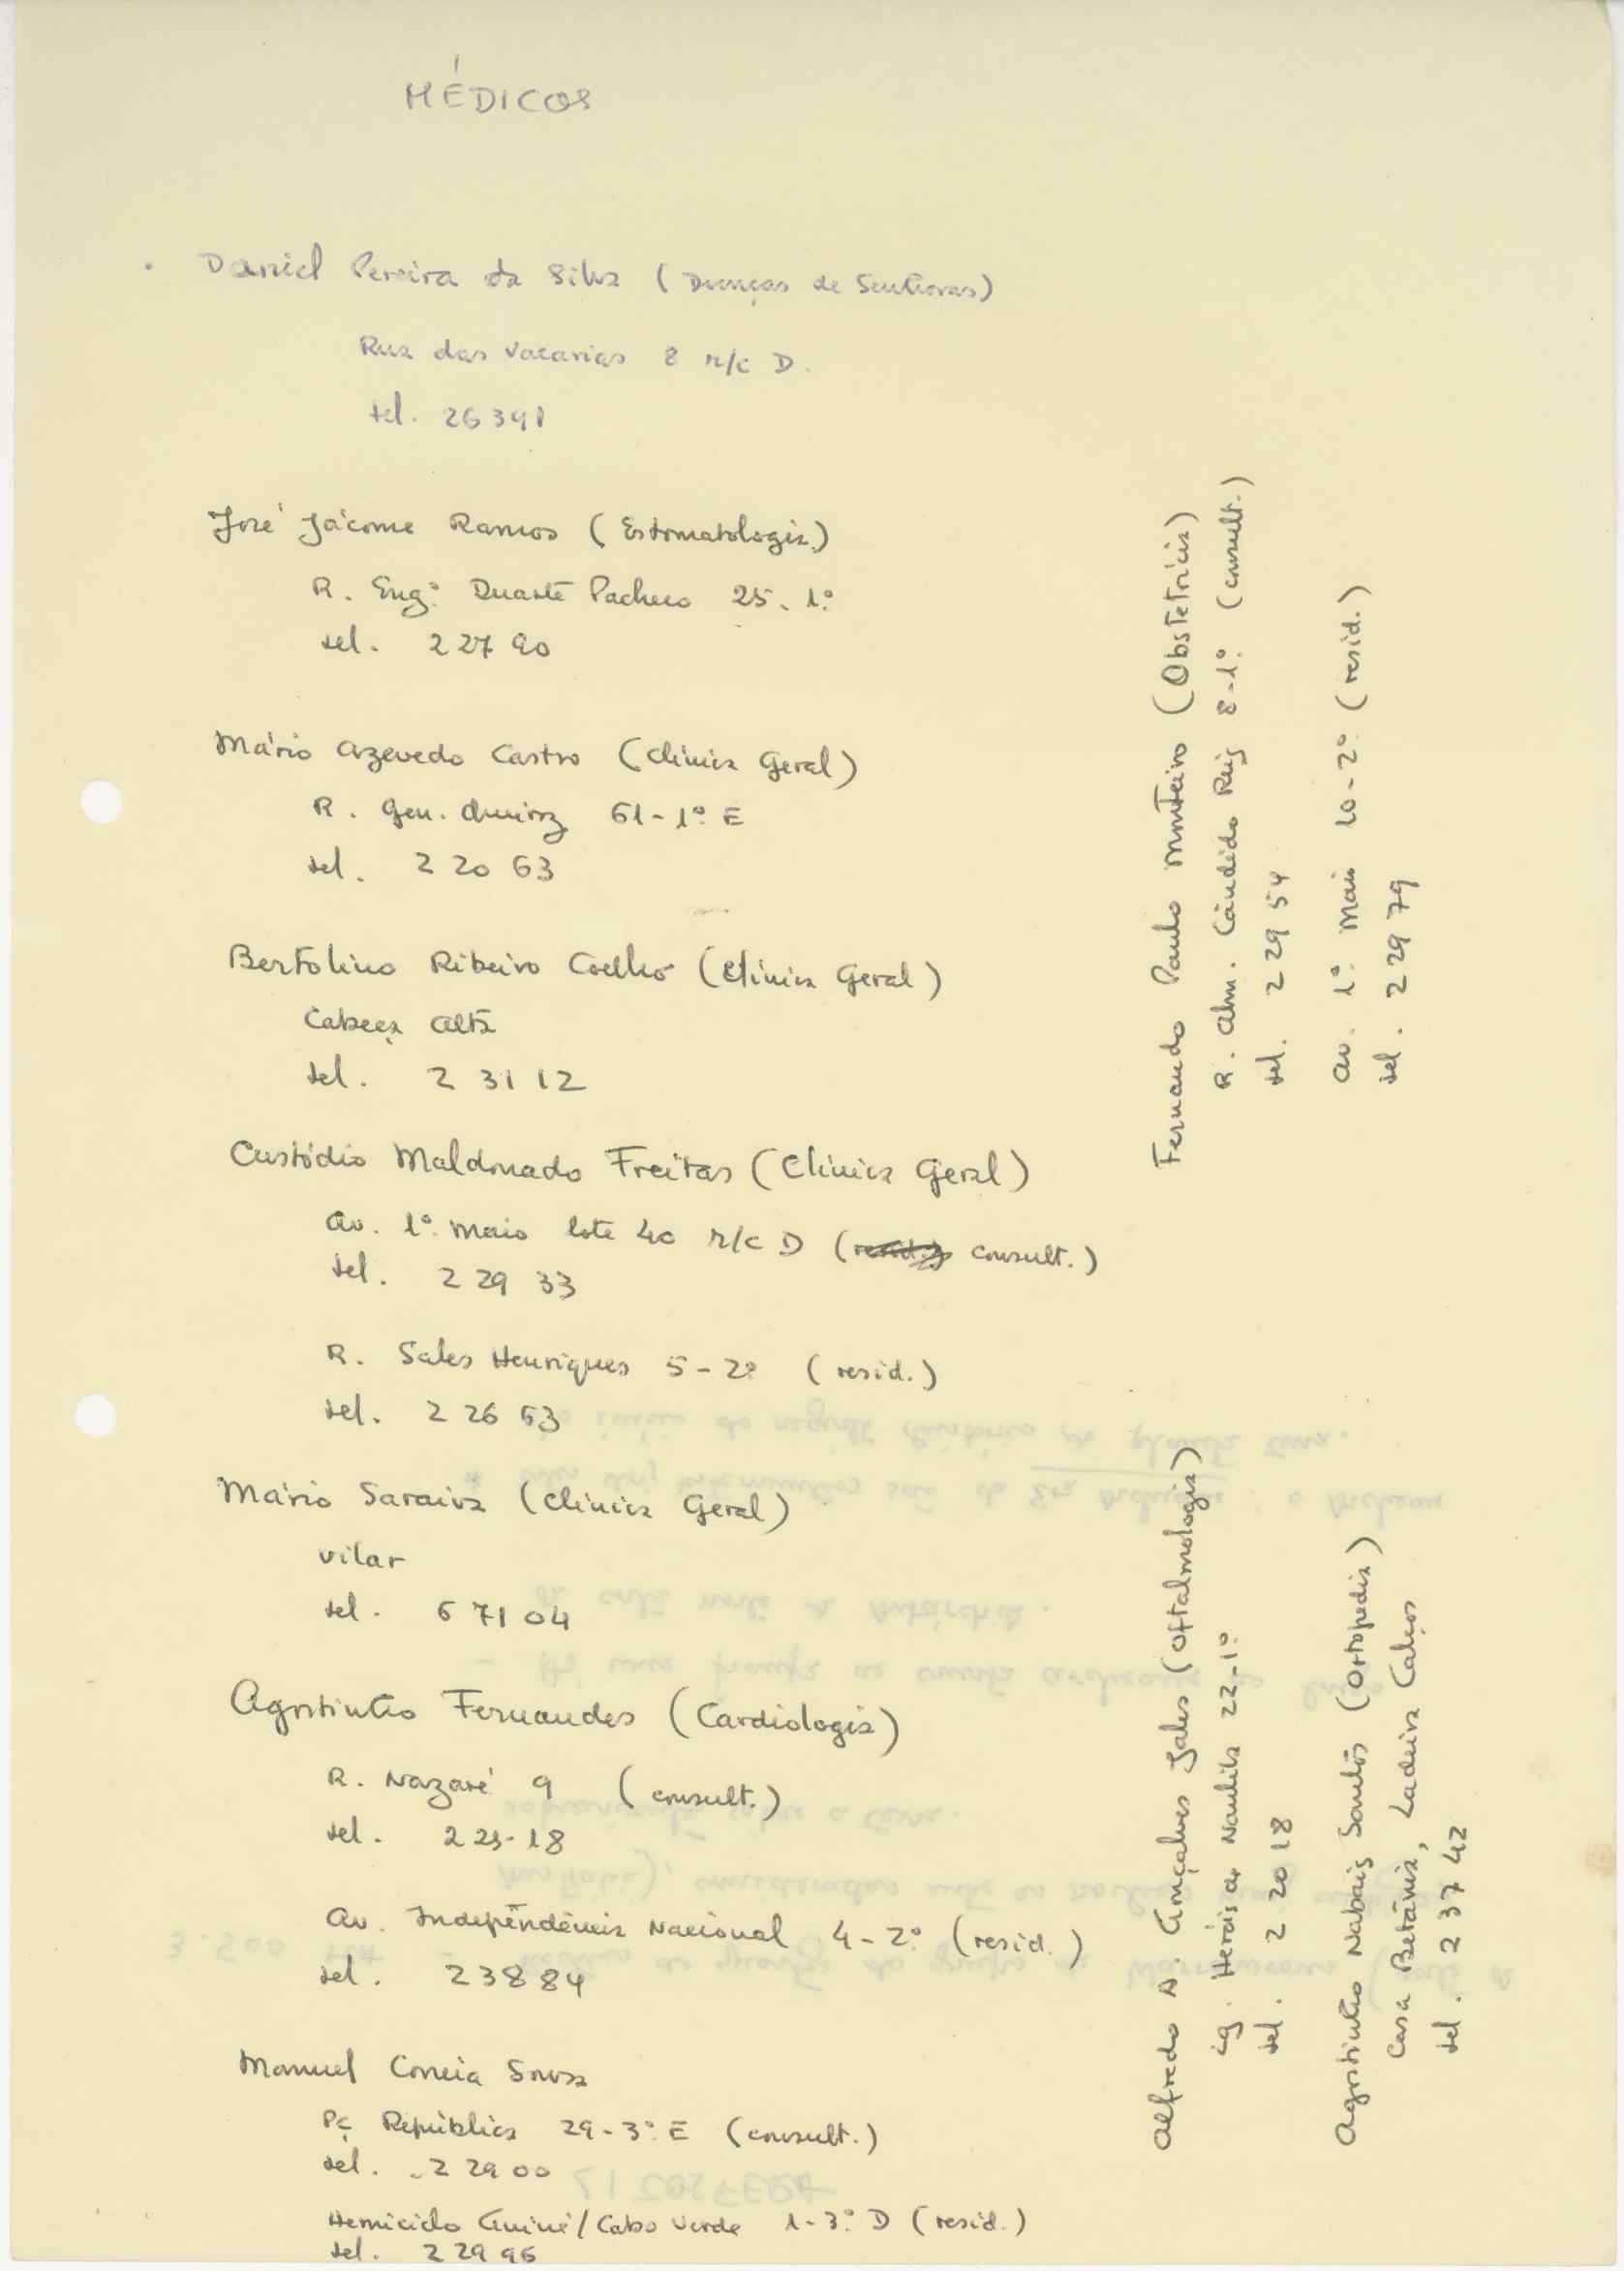 MÉDICOS
. Daniel Pereira da Silva (Doenças de Senhoras)
Rua das Vacarias 8 r/c D.
tel. 26391
José Jácome Ramos (Estomatologia)
R. Engº. Duarte Pacheco 25. 1º.
tel. 2 27 90
Mário Azevedo Castro (Clínica Geral)
R. Gen. Queiroz 61-1º. E
tel. 2 20 63
Bertolino Ribeiro Coelho (Clínica Geral)
Cabeça Alta
tel. 2 31 12
Custódio Maldonado Freitas (Clínica Geral)
Av. 1º. Maio lote 40 r/c D ( consult.)
tel. 2 29 33
R. Sales Henriques 5-2º. (resid.)
tel. 2 26 53
Mário Saraiva (Clínica Geral)
Vilar
tel. 6 71 04
Agostinho Fernandes (Cardiologia)
R. Nazaré 9 (consult.)
tel.
Av. Independência Nacional 4-2º. (resid.)
tel. 23884
Manuel Correia Sousa
Pç República 29-3º. E (consult.)
tel. 2 29 00
Hemiciclo Guiné/Cabo Verde 1-3º. D (resid.)
tel. 2 29 96
Fernando Paulo Monteiro (Obstetrícia)
R. Alm. Cândido Reis 8-1º. (consult.)
tel. 2 29 54
Av. 1º. Maio 10-2º. (resid.)
tel. 2 29 79
Alfredo A. Gonçalves Sales (Oftalmologia)
Lg. Heróis de Naulila 22-1º.
tel. 2 20 18
Agostinho Nabais Santos (Ortopedia)
Casa Betânia, Ladeira
tel. 2 37 42